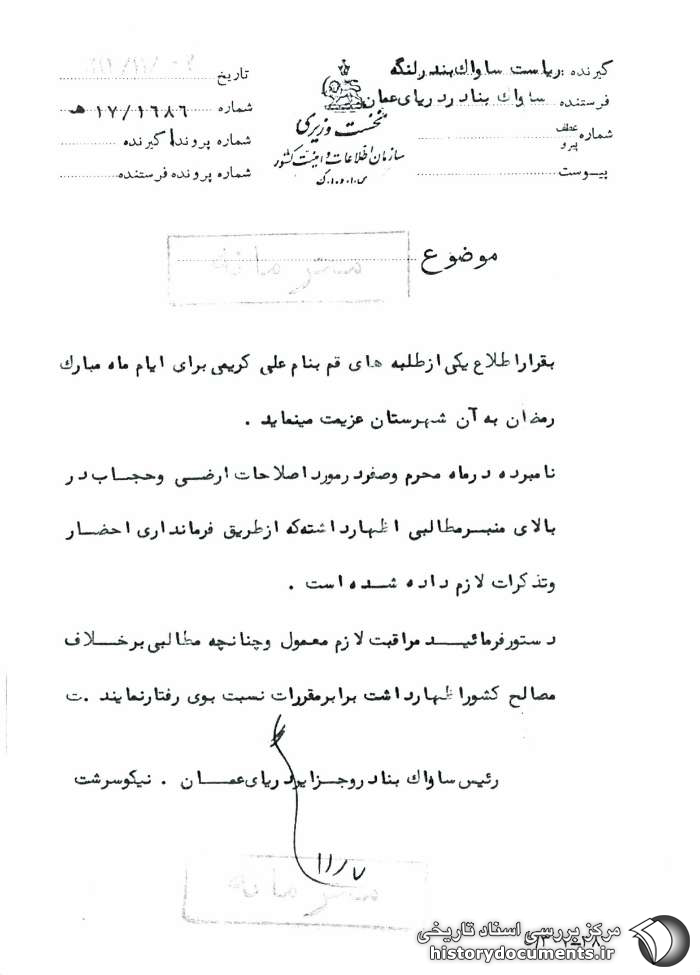 گیرنده : ریاست ساواک بندر لنگه
فرستنده ساواک بنادر دریای عمان
شماره عطف
پیرو
پیوست
نخست وزیری
سازمان اطلاعات و امنیت کشور
س.ا.و.ا.ک
تاریخ
شماره ۱۷/۱۶۸۶ هـ
شماره پرونده گیرنده
شماره پرونده فرستنده
موضوع
بقرار اطلاع یکی از طلبه های قم بنام علی کریمی برای ایام ماه مبارک
رمضان به آن شهرستان عزیمت مینماید .
نامبرده در ماه محرم وصفر در مورد اصلاحات ارضی وحجاب در
بالای منبر مطالبی اظهار داشته که از طریق فرمانداری احضار
وتذکرات لازم داده شده است .
دستور فرمائید مراقبت لازم معمول وچنانچه مطالبی برخلاف
مصالح کشور اظهار داشت برابر مقررات نسبت بوی رفتار نمایند .ت
رئیس ساواک بنادر وجزایر دریای عمان . نیکوسرشت
۱۱/۷
مرکز بررسی اسناد تاریخی
historydocuments.ir